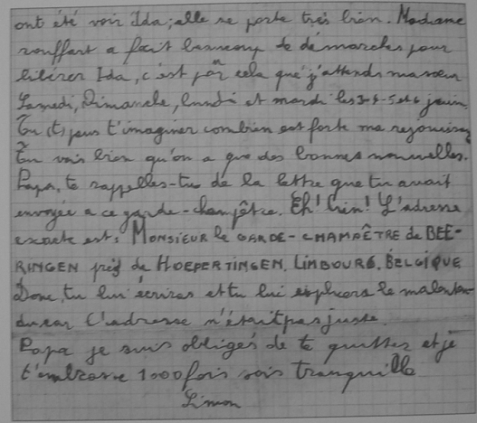 ont été voir Ida; elle se porte très bien. Madame
rouffart a fait beaucoup de démarches pour
libérer Ida, c'est pour cela que j'attends ma sœur
Samedi, Dimanche, lundi et mardi les 3-4-5 et 6 juin
Tu (t) peux t'imaginer combien est forte ma
Tu vois bien qu'on a que des bonnes nouvelles.
Papa, te rappelles-tu de la lettre que tu avait
envoyée a ce garde-champêtre. Eh! bien! L'adresse
exacte est: MONSIEUR le GARDE-CHAMPÊTRE de BEE-
RINGEN près de HOEPERTINGEN, LIMBOURG, BELGIQUE
Donc, tu lui écriras et tu lui expliquera le malenten-
du car l'adresse n'était pas juste.
Papa je suis obligés de te quitter et je
t'embrasse 1000 fois sois tranquille
Simon